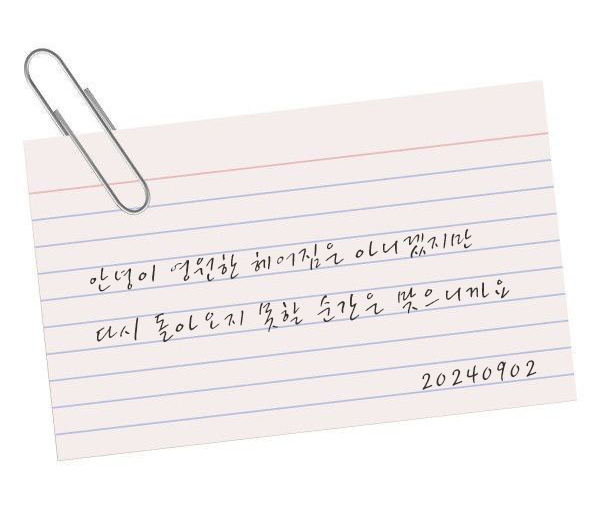 안녕이 영원한 헤어짐은 아니겠지만
다시 돌아오지 못할 순간은 맞으니까요
20240902